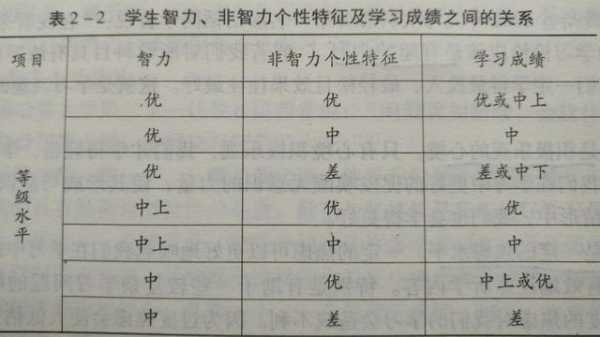 表2-2 学生智力、非智力个性特征及学习成绩之间的关系
项目 智力 非智力个性特征 学习成绩
等级水平
优 优 优或中上
优 中 中
优 差 差或中下
中上 优 优
中上 中 中
中 优 中上或优
中 差 差